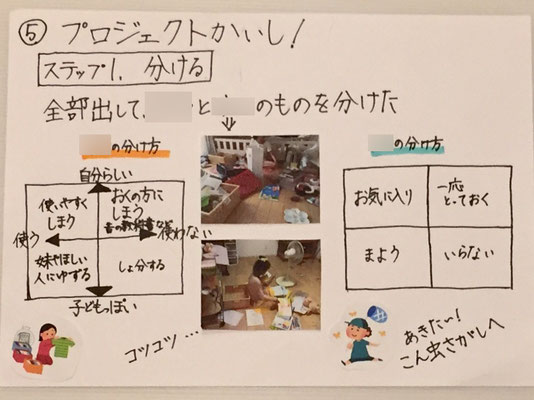 ⑤ プロジェクトかいし!
ステップ1. 分ける
全部出して、 と のものを分けた
の分け方
自分らしい
使いやすく
しまう
おくの方に
しまう
昔の教科書など
使う
使わない
妹やほしい
人にゆずる
しょ分する
子どもっぽい
コツコツ…
の分け方
お気に入り
一応
とっておく
まよう
いらない
あきたい!
こん虫さがしへ